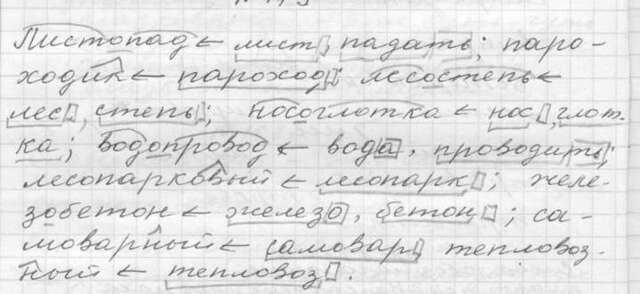 Листопад ← лист, падать; паро-
ходик ← пароход; лесостепь ←
лес, степь; носоглотка ← нос, глот-
ка; водопровод ← вода, проводить;
лесопарковый ← лесопарк; желе-
зобетон ← железо, бетон; са-
моварный ← самовар, тепловоз-
ный ← тепловоз.